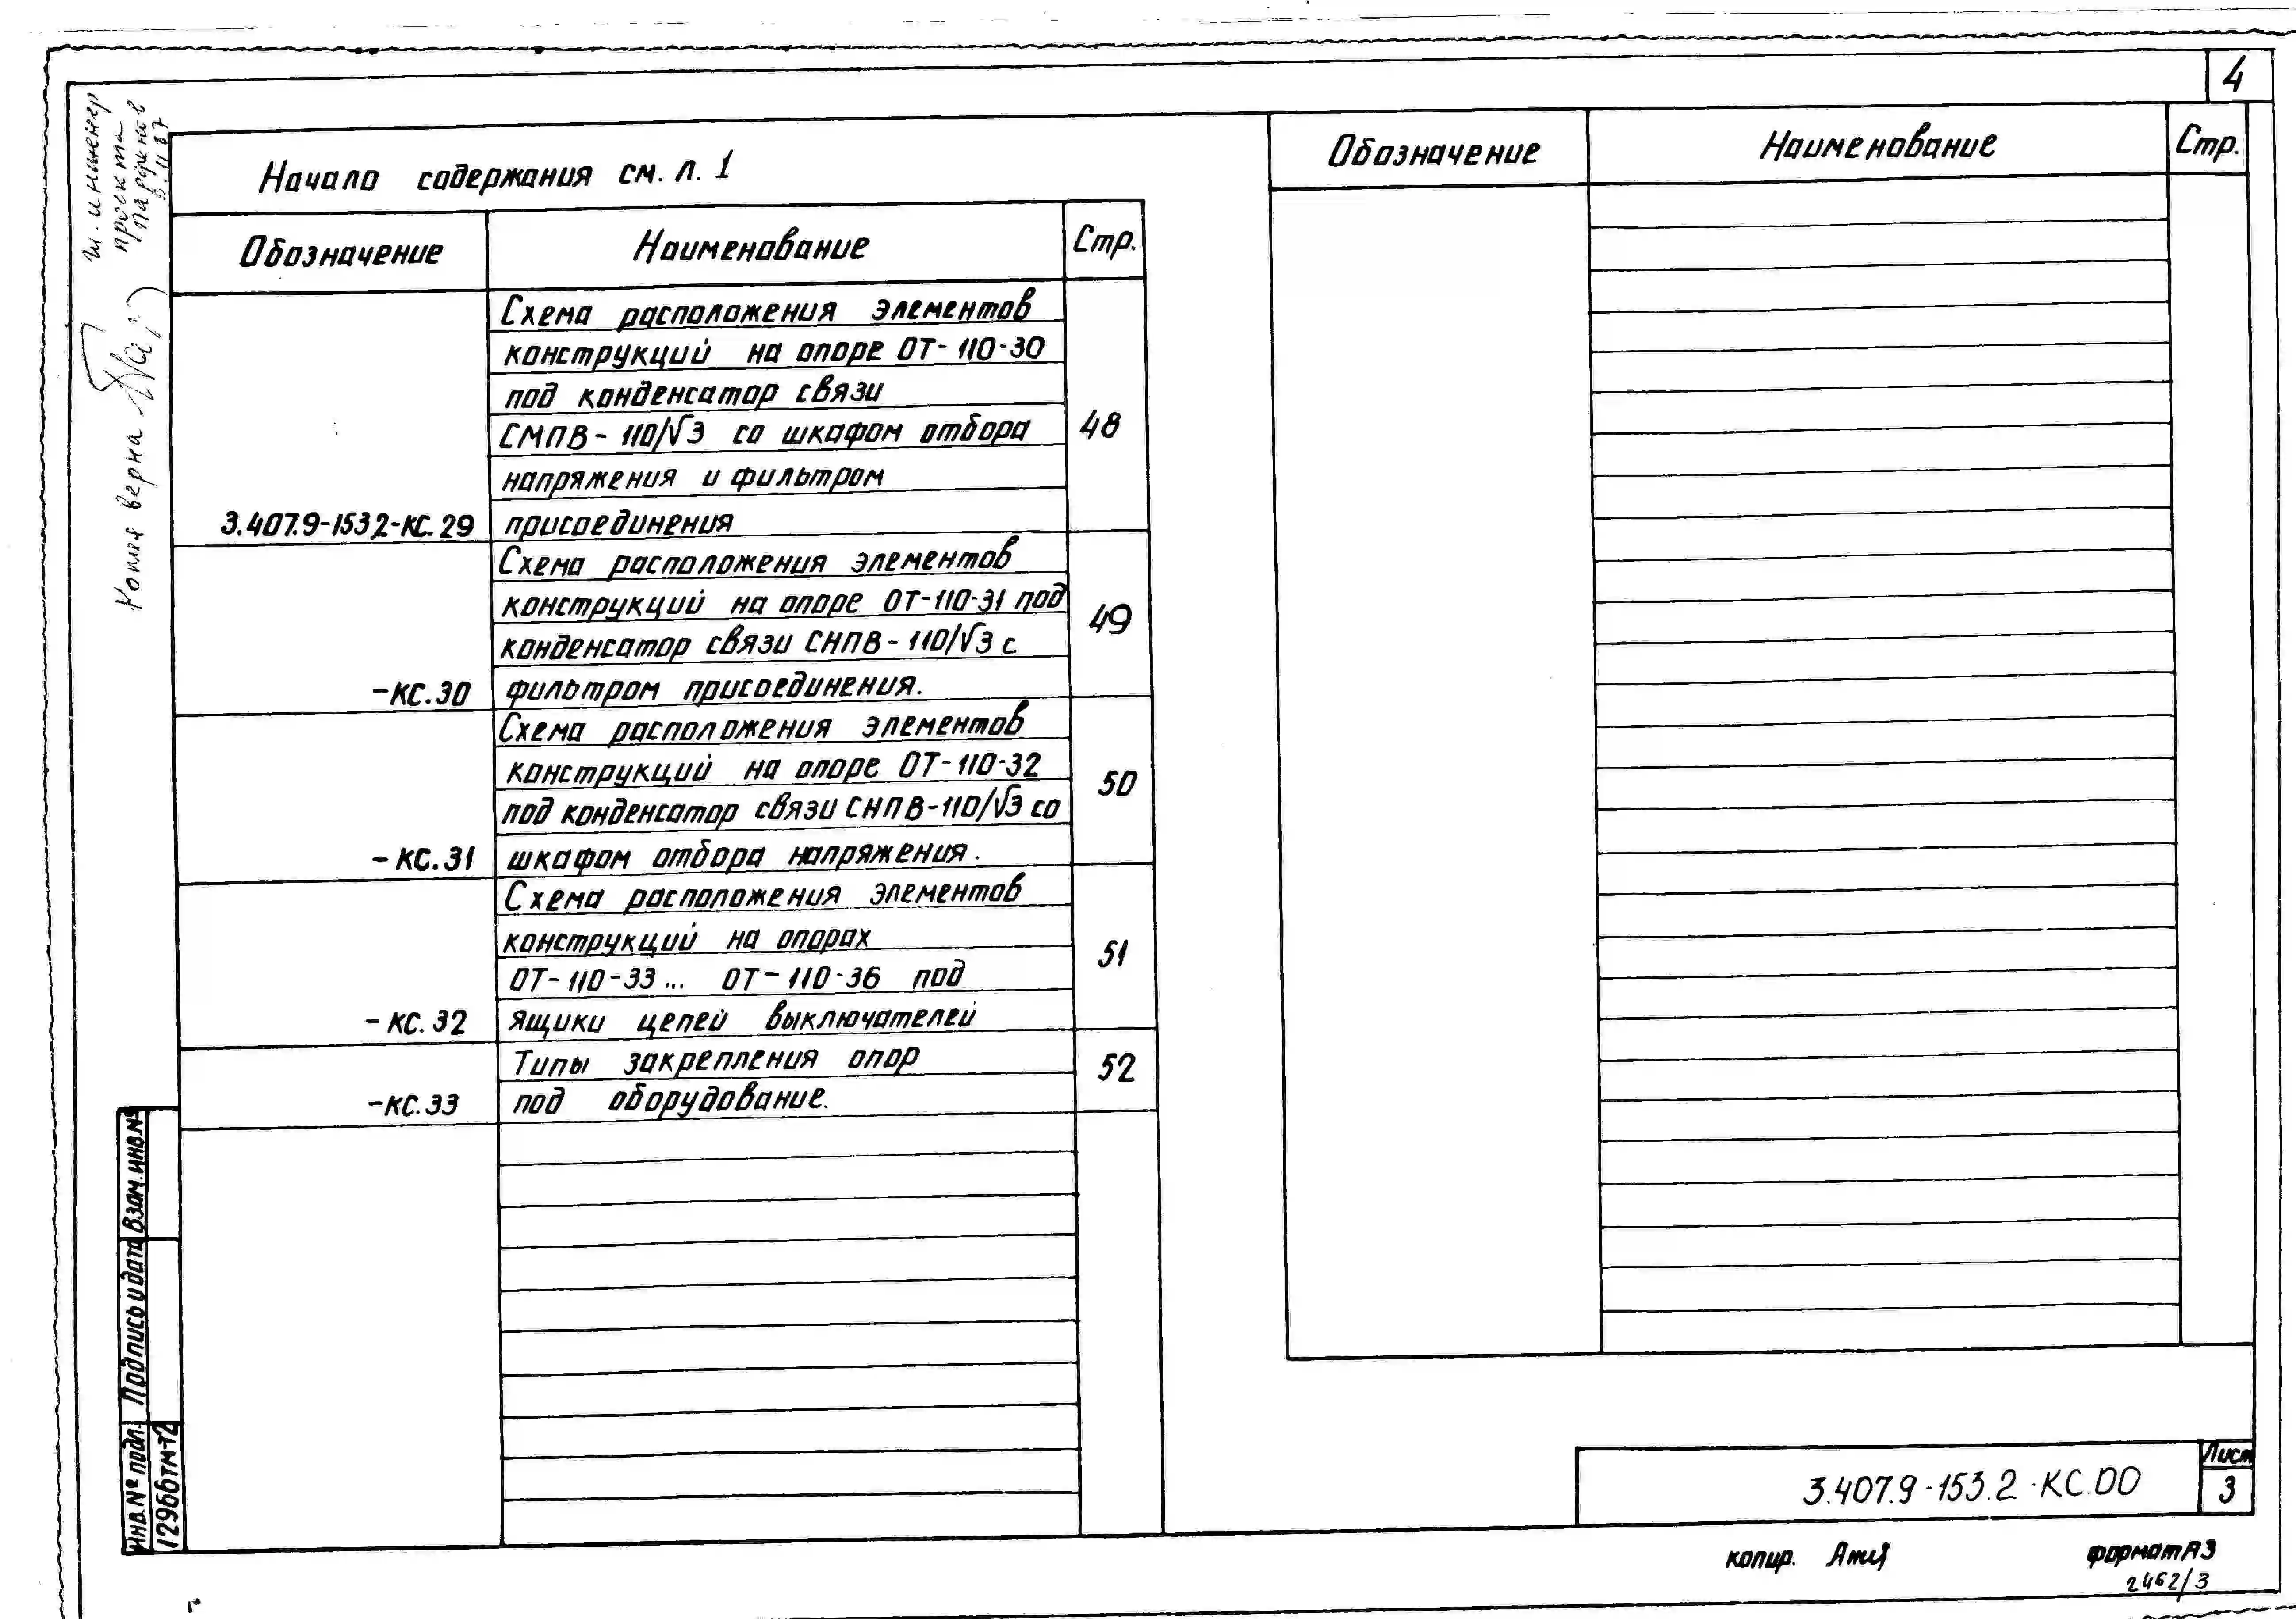 4
Начало содержания см. л. 1
Обозначение Наименование Стр.
Схема расположения элементов
конструкций на опоре ОТ-110-30
под конденсатор связи
СМПВ-110/√3 со шкафом отбора
напряжения и фильтром
3.407.9-153.2-КС.29 присоединения 48
Схема расположения элементов
конструкций на опоре ОТ-110-31 под
конденсатор связи СНПВ-110/√3 с
-КС.30 фильтром присоединения. 49
Схема расположения элементов
конструкций на опоре ОТ-110-32
под конденсатор связи СНПВ-110/√3 со
-КС.31 шкафом отбора напряжения. 50
Схема расположения элементов
конструкций на опорах
ОТ-110-33... ОТ-110-36 под
-КС.32 ящики цепей выключателей 51
Типы закрепления опор
-КС.33 под оборудование. 52
Обозначение Наименование Стр.
3.407.9-153.2-КС.00
Лист
3
копир.
формат А3
2462/3
Копия верна
инженер
проекта
3.11.87
Взам. инв. №
Подпись и дата
Инв. № подл.
12966тм-т2